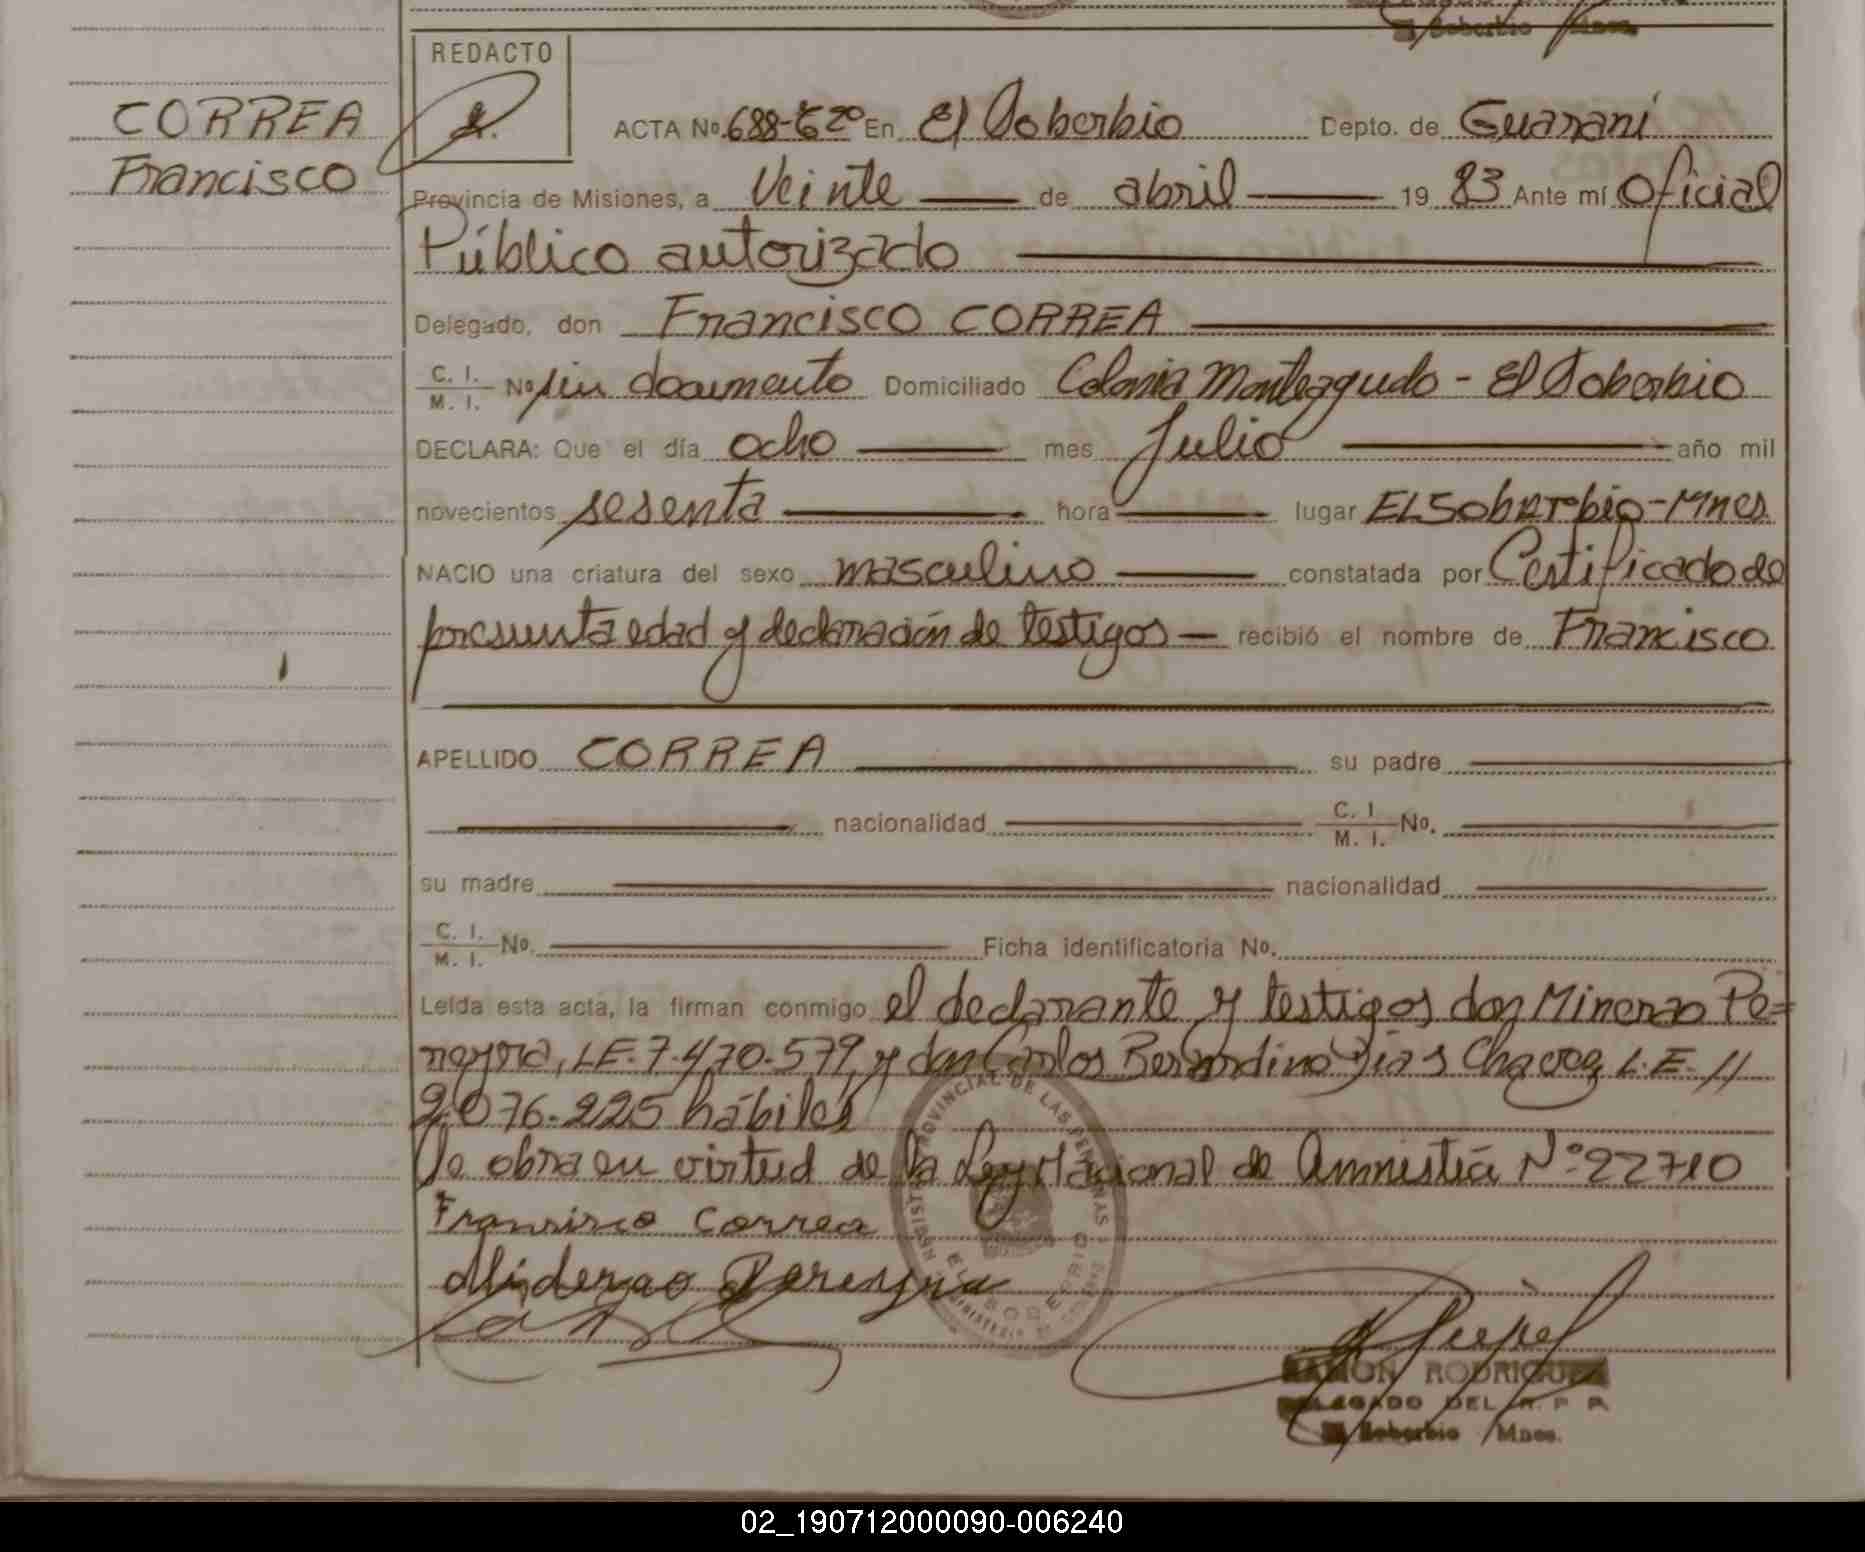 REDACTO
CORREA
Francisco
ACTA No. 688-Tº 2º En El Soberbio Depto. de Guaraní
Provincia de Misiones, a Veinte de abril 19 83 Ante mí Oficial
Público autorizado
Delegado, don Francisco CORREA
C. I.
M. I. Nº sin documento Domiciliado Colonia Monteagudo - El Soberbio
DECLARA: Que el día ocho mes Julio año mil
novecientos sesenta hora lugar EL Soberbio-Mnes.
NACIO una criatura del sexo masculino constatada por Certificado de
presunta edad y declaración de testigos recibió el nombre de Francisco
APELLIDO CORREA su padre
nacionalidad C. I.
M. I. No.
su madre nacionalidad
C. I.
M. I. No. Ficha identificatoria No.
Leída esta acta, la firman conmigo el declarante y testigos don Minervo Pe=
reyra, L.E. 7.470.579, y don Carlos Bernardino Días Chavez, L.E. //
2.076.225 hábiles
Se obra en virtud de la Ley Nacional de Amnistía Nº 22710
Francisco Correa
Pereyra
RAMON RODRIGUEZ
DELEGADO DEL R. P. P.
El Soberbio Mnes.
REGISTRO PROVINCIAL DE LAS PERSONAS
EL SOBERBIO
02_190712000090-006240